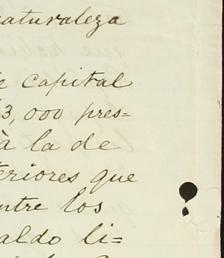 naturaleza
capital
3,000 pres=
à la de
teriores que
entre los
aldo li=